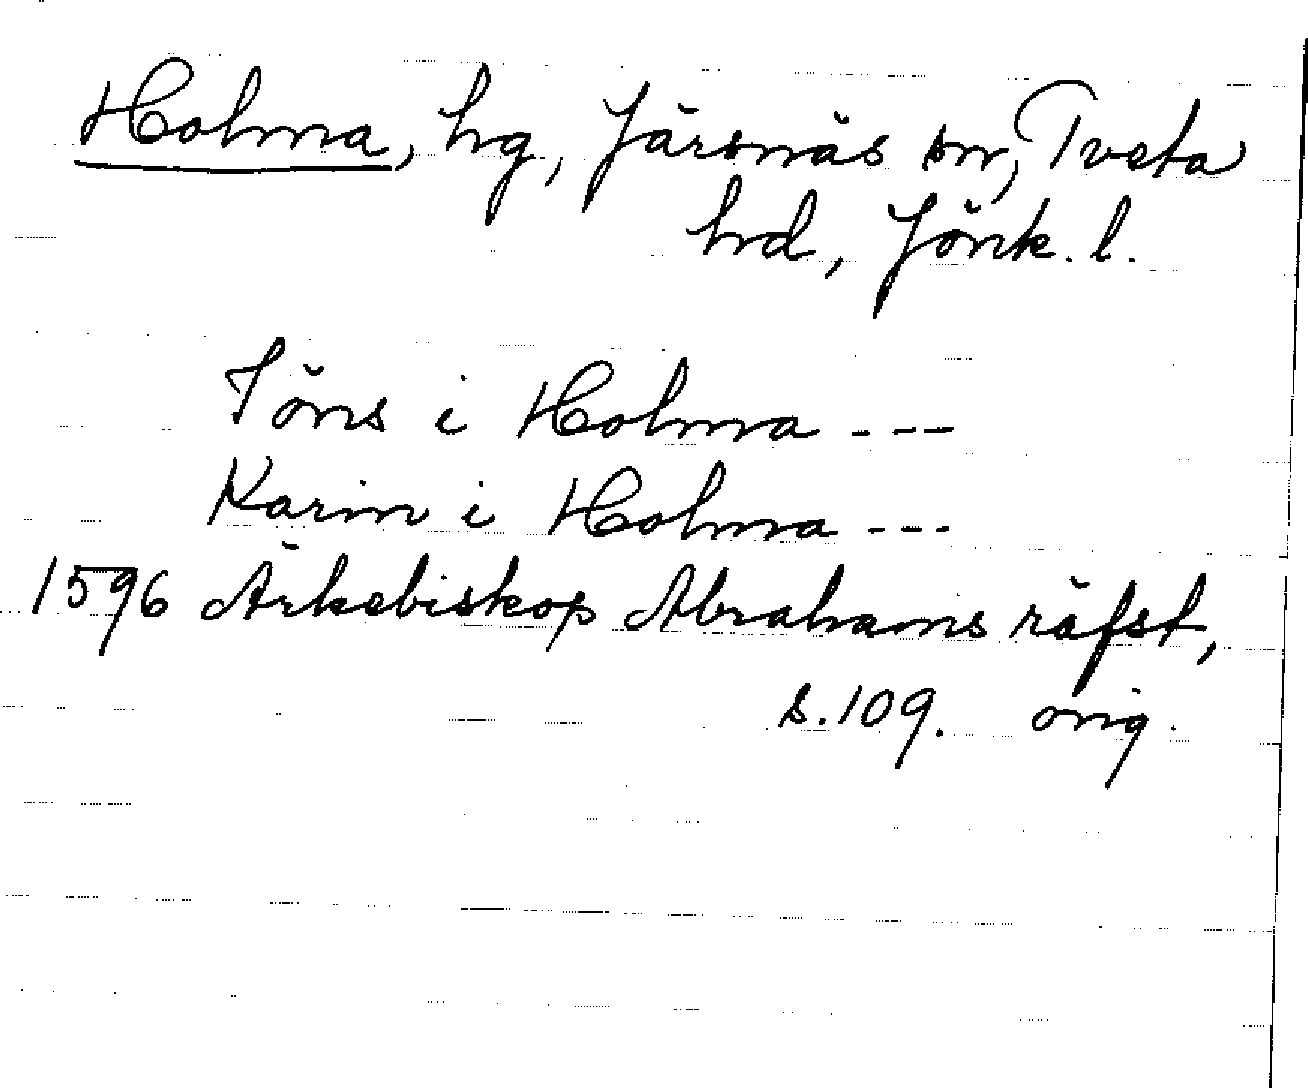 Holma, hg, Järsnäs sn, Tveta
hd, Jönk. l.
Jöns i Holma ---
Karin i Holma ---
1596 Ärkebiskop Abrahams räfst,
s. 109. orig.